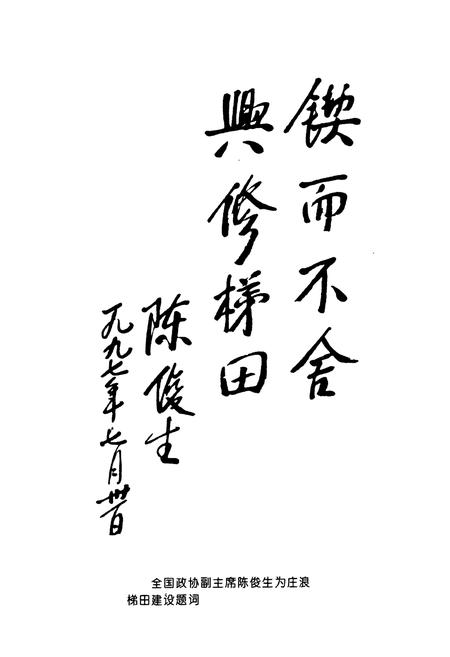 锲而不舍
興修梯田
陈俊生
一九九七年七月卅日
全国政协副主席陈俊生为庄浪
梯田建设题词